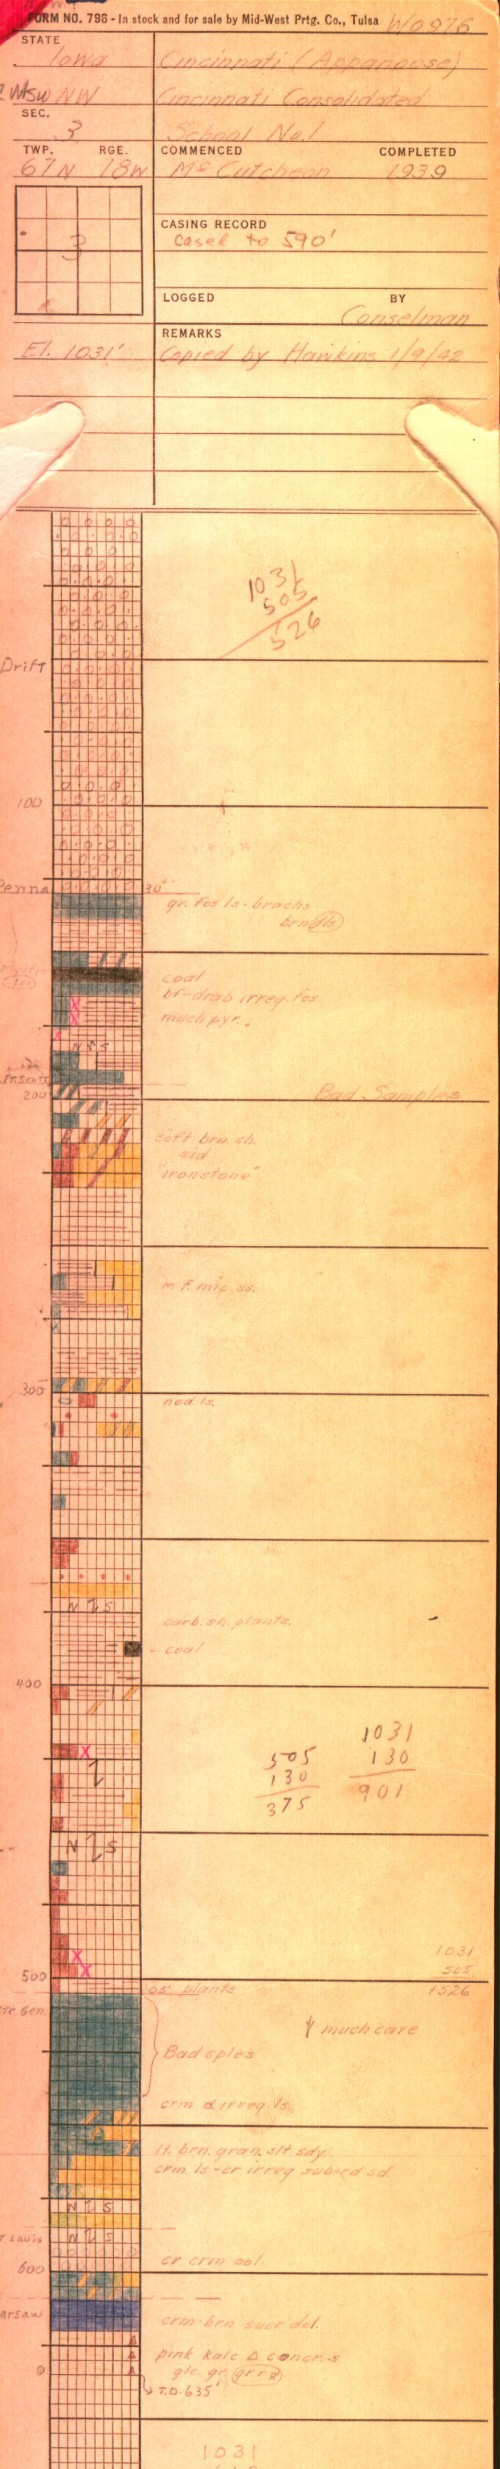 FORM NO. 796 - In stock and for sale by Mid-West Prtg. Co., Tulsa W0976
STATE
Iowa Cincinnati (Appanoose)
NW Cincinnati Consolidated
SEC.
3 School No1
TWP. RGE. COMMENCED COMPLETED
67N 18W Mc Cutcheon 1939
CASING RECORD
3 Casel to 590'
LOGGED BY
Conselman
REMARKS
El. 1031' Copied by Hawkins 1/9/42
1031
505
526
Drift
100
Penna 30
gr. fos ls - brachs
brn gls
coal
bf-drab irreg. fos
much pyr.
N S
Ft. Scott
200 Bad Samples
soft brn. sh.
sid
"ironstone"
m.f. mic ss.
300
nod. ls.
N S
carb. sh. plants.
- coal
400
505 1031
130 130
375 901
N S
1031
500 505
05' plants +526
te Gen. much care
Bad sples
crm d irreg ls
lt. brn. gran. slt sdy.
crm. ls - cr irreg sub-rd sd.
N S
T. Louis N S
cr crm ool
600
arsaw crm-brn sucr dol.
pink kalc Δ concr.s
glc. gr.
T.D. 635'
1031